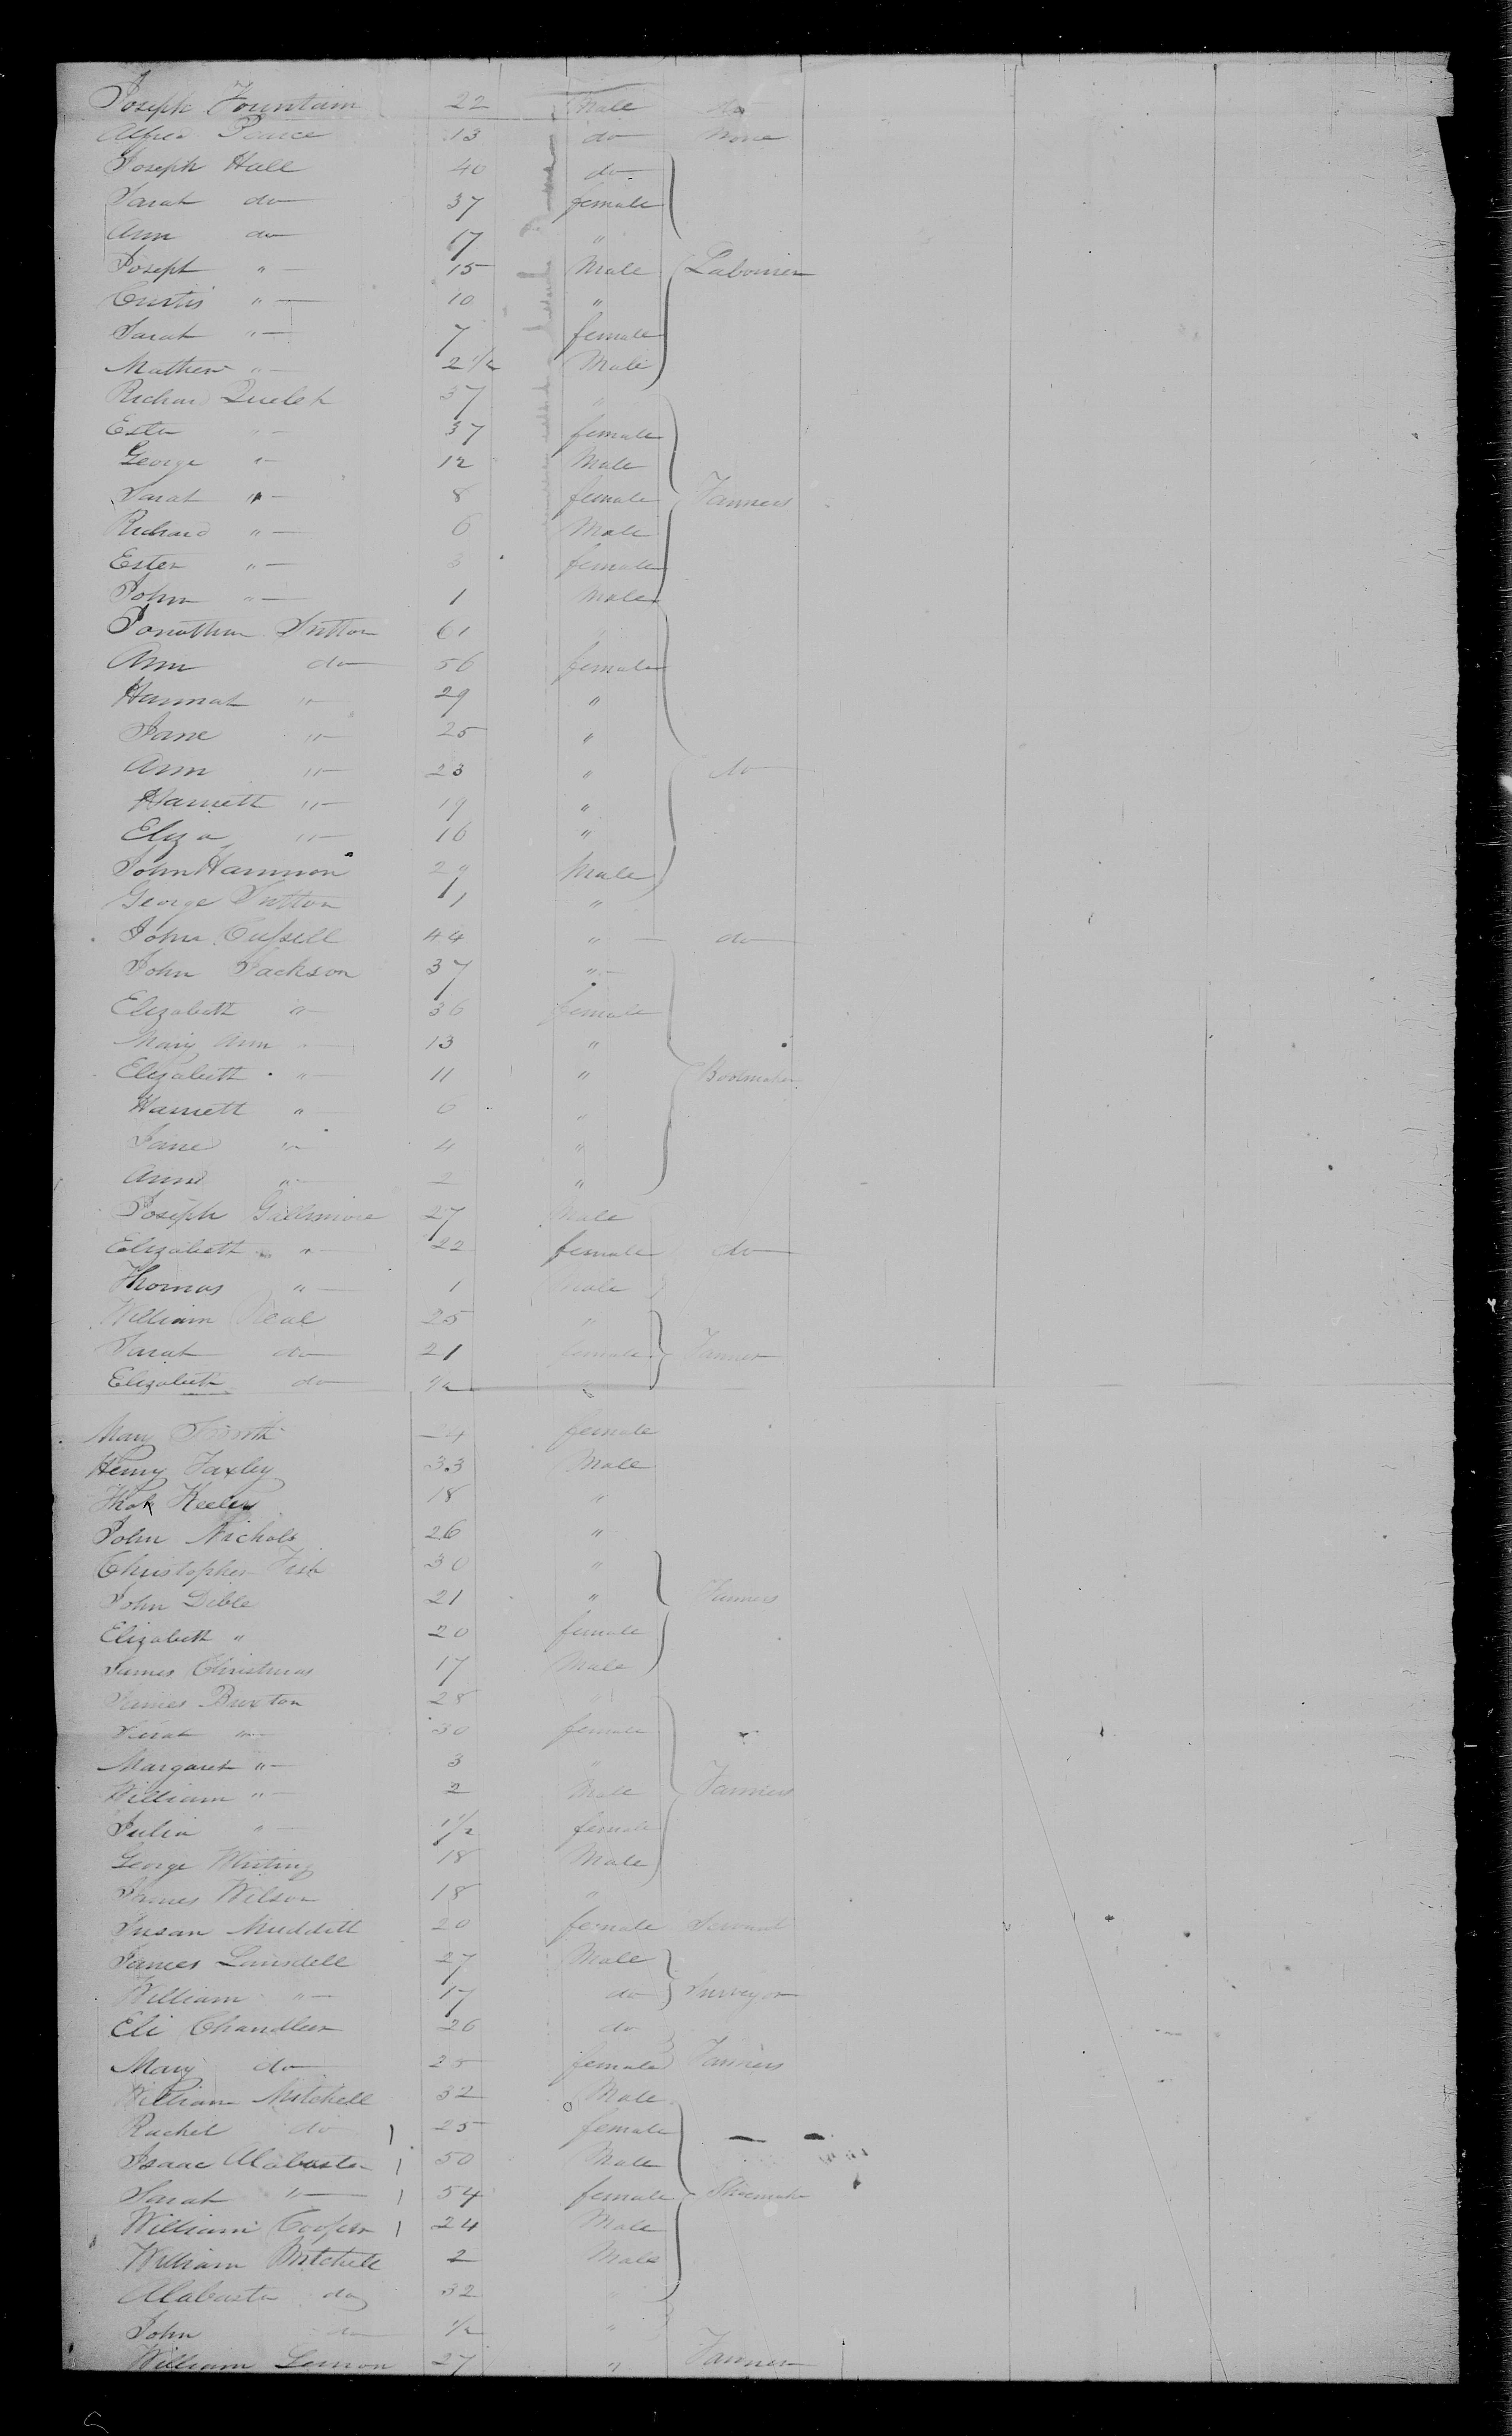 Joseph Fountain 22 Male do
Alfred Pearce 13 do None
Joseph Hall 40 do
Sarah do 37 female
Ann do 17 "
Joseph " 15 Male Labourer
Curtis " 10 "
Sarah " 7 female
Mathew " 2 1/2 Male
Richard Quelch 37 "
Ester " 37 female
George " 12 Male
Sarah " 8 female Farmers
Richard " 6 Male
Ester " 3 female
John " 1 Male
Jonathan Sutton 61 "
Ann do 56 female
Hannah " 29 "
Jane " 25 "
Ann " 23 " do
Harriett " 19 "
Eliza " 16 "
John Hammon Male
George Sutton "
John Cufsell 44 " do
John Jackson 37 "
Elizabeth " 36 female
Mary Ann " 13 "
Elizabeth " 11 " Bootmaker
Harriett " 6 "
Jane " 4 "
Anne " 2 "
Joseph Gallimore 27 Male
Elizabeth " 22 female do
Thomas " 1 Male
William Neal 25 "
Sarah do 21 female Farmer
Elizabeth do 1/2
Mary female
Henry Faxley 33 Male
Keeley 18 "
John Nichols 26 "
Christopher Fisk 30 "
John Dible 21 " Farmers
Elizabeth " 20 female
James Christmas 17 Male
James Buxton 28 "
Sarah " 30 female
Margaret " 3 "
William " 2 Male Farmers
Julia " 1/2 female
George Whiting 18 Male
James Wilson 18 "
Susan Mudditt 20 female Servant
James Lansdell 27 Male
William " 17 do Surveyor
Eli Chandler 26 do
Mary do 25 female Farmers
William Mitchell 32 Male
Rachel do 25 female
Isaac Alabaster 50 Male
Sarah " 54 female Shoemaker
William Cooper 24 Male
William Mitchell 2 Male
Alabaster do 32
John do 1/2 "
William Lemon 27 " Farmer